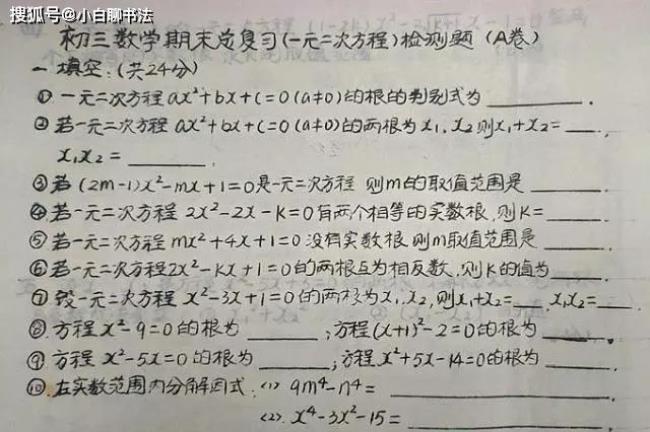 搜狐号@小白聊书法
初三数学期末总复习(一元二次方程)检测题 (A卷)
一 填空:(共24分)
① 一元二次方程 ax²+bx+c=0 (a≠0) 的根的判别式为 ______.
② 若一元二次方程 ax²+bx+c=0 (a≠0) 的两根为 x₁, x₂ 则 x₁+x₂= ___,
x₁x₂ = ______.
③ 若 (2m-1)x²-mx+1=0 是一元二次方程 则m的取值范围是 ______
④ 若一元二次方程 2x²-2x-k=0 有两个相等的实数根, 则k= ____
⑤ 若一元二次方程 mx²+4x+1=0 没有实数根 则m取值范围是 ____
⑥ 若一元二次方程2x²-kx+1=0的两根互为相反数, 则k的值为 ____.
⑦ 设一元二次方程 x²-3x+1=0的两根为x₁, x₂, 则x₁+x₂= ___, x₁x₂= ___
⑧ 方程 x²-9=0的根为 ______; 方程(x+1)²-2=0的根为 ______.
⑨ 方程 x²-5x=0 的根为 ______; 方程 x²+5x-14=0的根为 ______.
⑩ 在实数范围内分解因式: (1) 9m⁴-n⁴= ______.
(2). x⁴-3x²-15= ______